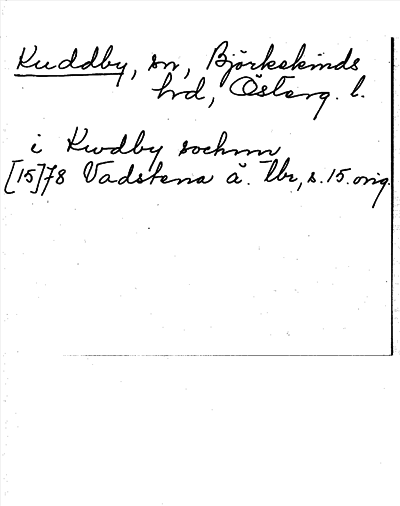 Kuddby, sn, Björkekinds
hrd, Österg. l.
i Kwdby sochnn
[15]78 Vadstena ä. lbr, s. 15. orig.